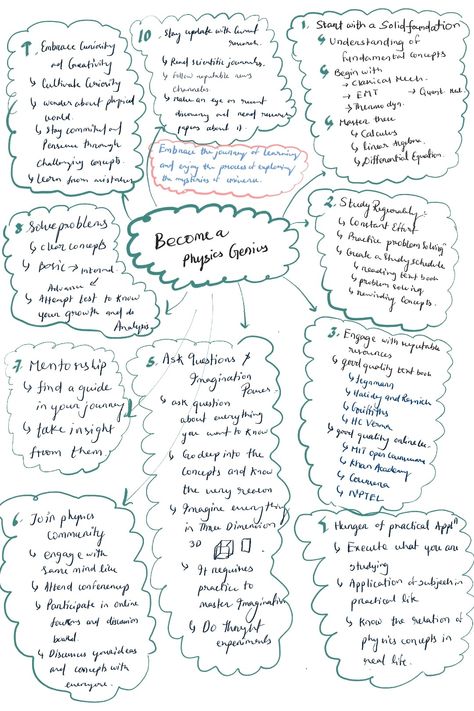 Become a
Physics Genius
1. Start with a Solid foundation
↳ Understanding of
fundamental concepts
↳ Begin with
→ Classical Mech.
→ EMT → Quant. Mel
→ Thermo dyn.
↳ Master three
↳ Calculus
↳ Linear algebra.
↳ Differential Equation.
2. Study Rigorously:
↳ Constant Effort
↳ Practice problem solving
↳ Create a study schedule
↳ reading text book
↳ problem solving
↳ rewinding concepts.
3. Engage with reputable
resources
↳ good quality text book
↳ Feynmann
↳ Haliday and Resnick
↳ Griffiths
↳ HC Verma
↳ good quality online lec.
↳ MIT open courseware
↳ Khan Academy
↳ Coursera
↳ NPTEL
4. Hunger of practical Appⁿ
↳ Execute what you are
studying
↳ Application of subjects in
practical life
↳ Know the relation of
physics concepts in
real life.
5. Ask Questions &
Imagination
Power.
↳ ask question
about everything
you want to know
↳ Go deep into the
concepts and know
the very reason
↳ Imagine everything
in Three Dimension
3D
↳ It requires
practice to
master Imagination
↳ Do thought
experiments
6. Join physics
community
↳ engage with
same mind like
↳ Attend conferences
↳ Participate in online
and discussion
board.
↳ Discuss your ideas
and concepts with
everyone.
7. Mentorship
↳ find a guide
in your journey
↳ take insight
from them.
8 Solve problems
↳ clear concepts
↳ Basic → Interm.
Advance ↲
↳ Attempt test to know
your growth and do
Analysis
9. Embrace Curiosity
and Creativity
↳ Cultivate Curiosity
↳ wonder about physical
world.
↳ Stay commited and
Persevere through
challenging concepts.
↳ Learn from mistakes
10. Stay update with current
research.
↳ Read scientific journals.
↳ Follow reputable news
channels.
↳ Make an eye on recent
discovery and read research
papers about it.
Embrace the journey of learning
and enjoy the process of exploring
the mysteries of universe.